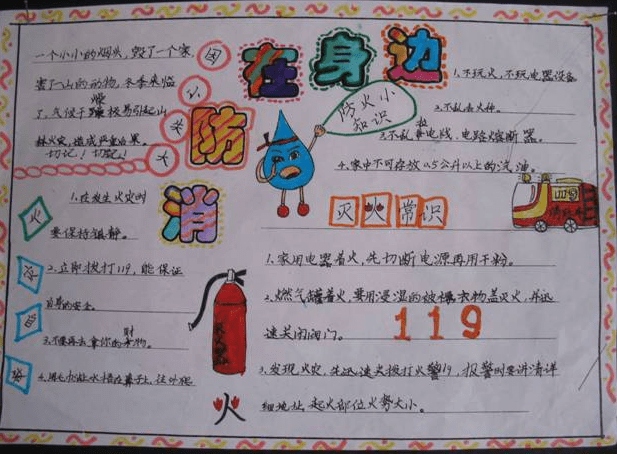 消防在身边
一个小小的烟头,毁了一个家,
害了一山的动物,冬季来临
了,气候干燥极易引起山
林火灾,造成严重后果。
切记!切记!
防火小
知识
1.不玩火,不玩电器设备
2.不乱丢火种。
3.不乱私电线、电路熔断器。
4.家中不可存放0.5公升以上的汽油。
火
1.在发生火灾时
要保持镇静。
2.立即拨打119,能保证
自身的安全。
财物。
4.用
灭火常识
1.家用电器着火,先切断电源再用干粉。
2.燃气罐着火,要用浸湿的被褥衣物盖灭火,并迅
速关闭阀门。
119
3.发现火灾,先迅速火拨打火警119,报警时要讲清详
细地址、起火部位火势大小。
灭火器
火